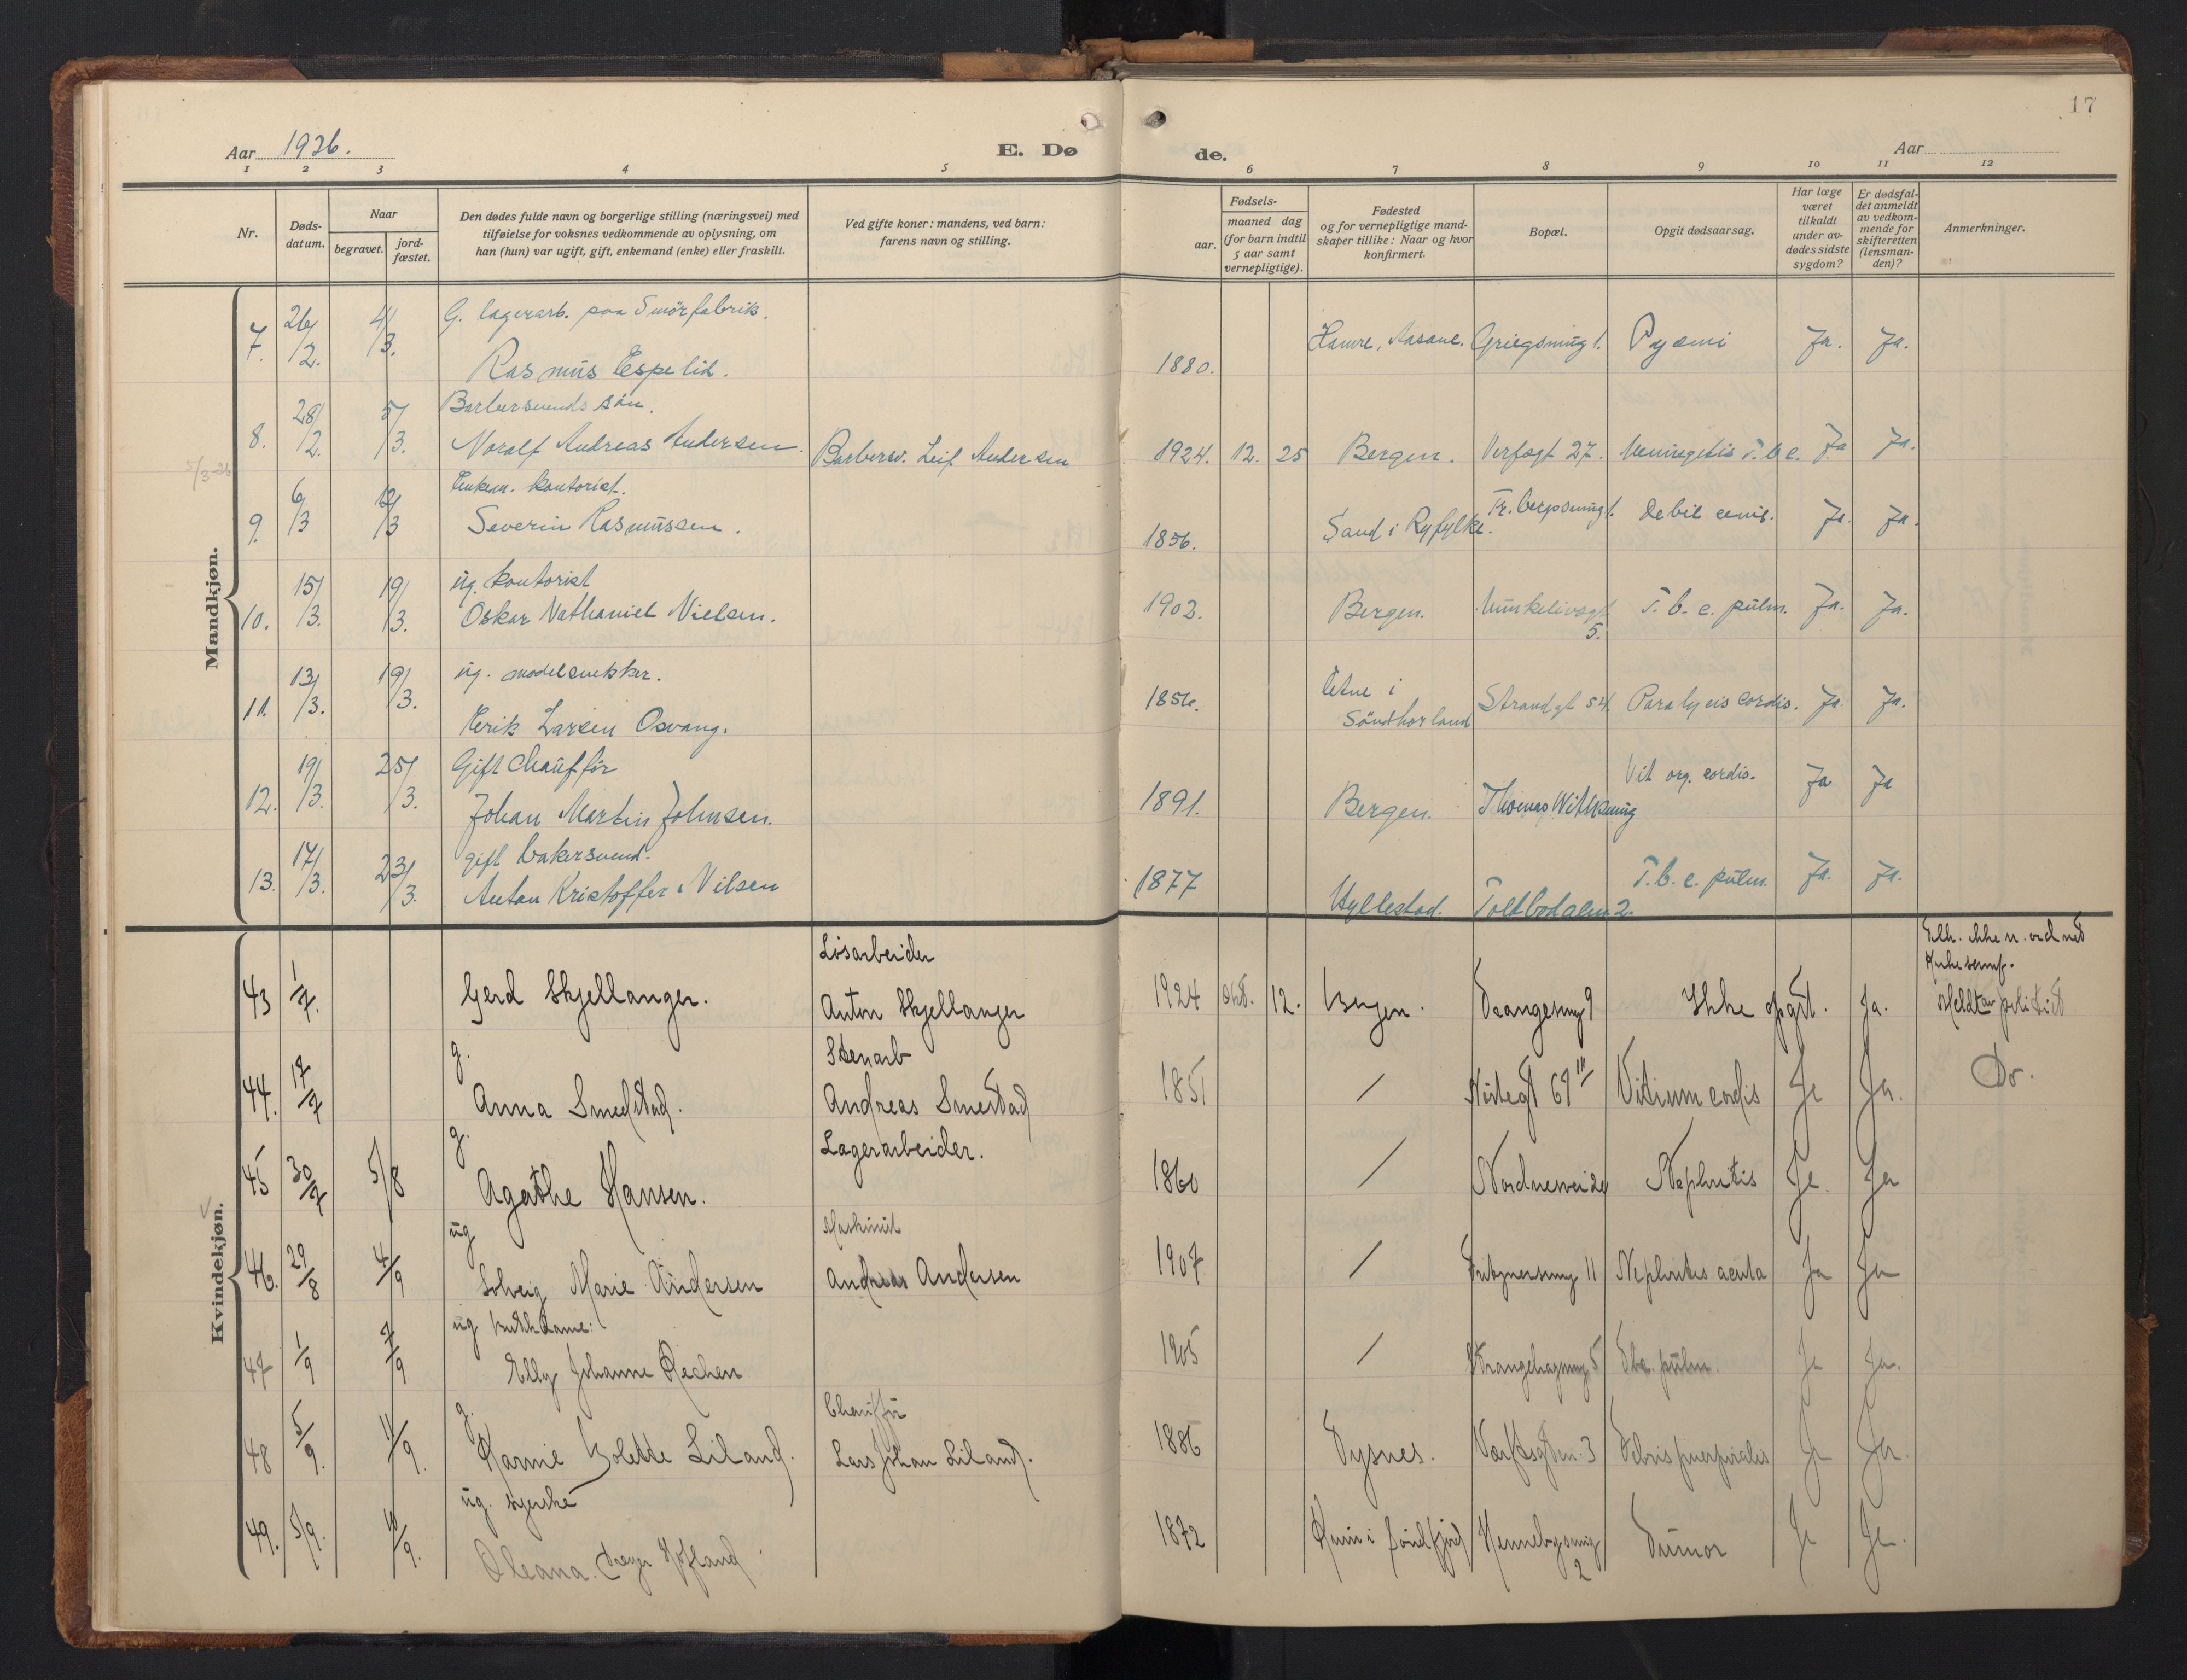 17
Aar 1926.
E. Dø
de.
Aar
1 2 3 4 5 6 7 8 9 10 11 12
Nr.
Døds-
datum.
Naar
begravet.
jord-
fæstet.
Den dødes fulde navn og borgerlige stilling (næringsvei) med
tilføielse for voksnes vedkommende av oplysning, om
han (hun) var ugift, gift, enkemand (enke) eller fraskilt.
Ved gifte koner: mandens, ved barn:
farens navn og stilling.
Fødsels-
aar.
maaned dag
(for barn indtil
5 aar samt
vernepligtige).
Fødested
og for vernepligtige mand-
skaper tillike: Naar og hvor
konfirmert.
Bopæl.
Opgit dødsaarsag.
Har læge
været
tilkaldt
under av-
dødes sidste
sygdom?
Er dødsfal-
det anmeldt
av vedkom-
mende for
skifteretten
(lensman-
den)?
Anmerkninger.
Mandkjøn.
7. 26/2. 4/3. G. lagerarb. paa Smørfabrik.
Rasmus Espelid. 1880. Hamre, Aasane. Griegsmug 1. Pyæmi Ja. Ja.
8. 28/2. 5/3. Barbersvends søn.
Noralf Andreas Andersen. Barbersv. Leif Andersen 1924. 12. 25 Bergen. Verfsgt 27. Meningitis T.b.c. Ja Ja.
5/3-26
9. 6/3 12/3 Enkem. kontorist.
Severin Rasmussen. 1856. Sand i Ryfylke. Debil senil. Ja. Ja.
10. 15/3. 19/3. ug. kontorist
Oskar Nathaniel Nielsen. 1903. Bergen. Munkelivsgt
5. T.b.c. pulm. Ja. Ja.
11. 13/3. 19/3. ug. modelsnekker.
Eerik Larsen Osvang. 1856. Etne i
Söndhorland Strandgt 54. Paralysis cordis. Ja. Ja.
12. 19/3. 25/3. Gift Chauffør
Johan Martin Johnsen. 1891. Bergen. Vit org. cordis. Ja Ja
13. 17/3. 23/3. gift bakersvend.
Anton Kristoffer Nilsen 1877 Hyllestad. Toldbodalm 2. T.b.c. pulm. Ja. Ja.
Kvindekjøn.
43 1/7. Gerd Skjellanger. Løsarbeider
Anton Skjellanger 1924 Okt. 12. Bergen. Ikke opgit. Ja.
Meldt av politiet
44. 17/7 g.
Anna Smedstad. Stenarb
Andreas Smestad 1851 / Nøstegt 69 III Vitium cordis Ja Ja. Do.
45 30/7 5/8 g.
Agathe Hansen. Lagerarbeider. 1860 / Nordnesvei 24 Nephritis Ja Ja
46. 29/8 4/9 ug
Solveig Marie Andersen Maskinist
Andreas Andersen 1907 / Fritznersmug 11 Nephritis acuta Ja Ja
47 1/9 7/9 ug butikdame:
Elly Johanne Rechen 1905 / Strangehagmug 5 Tbc. pulm. Ja Ja.
48 5/9. 11/9. g.
Karnie Bolette Liland. Chauffør
Lars Johan Liland. 1886 Fysnes. Verftsgten. 3 Febris puerperalis Ja Ja.
49. 5/9. 10/9. ug. syerske
Oleana Hofland 1872 Kinn i Söndfjord Hennebysmug
2 Tumor Ja Ja.